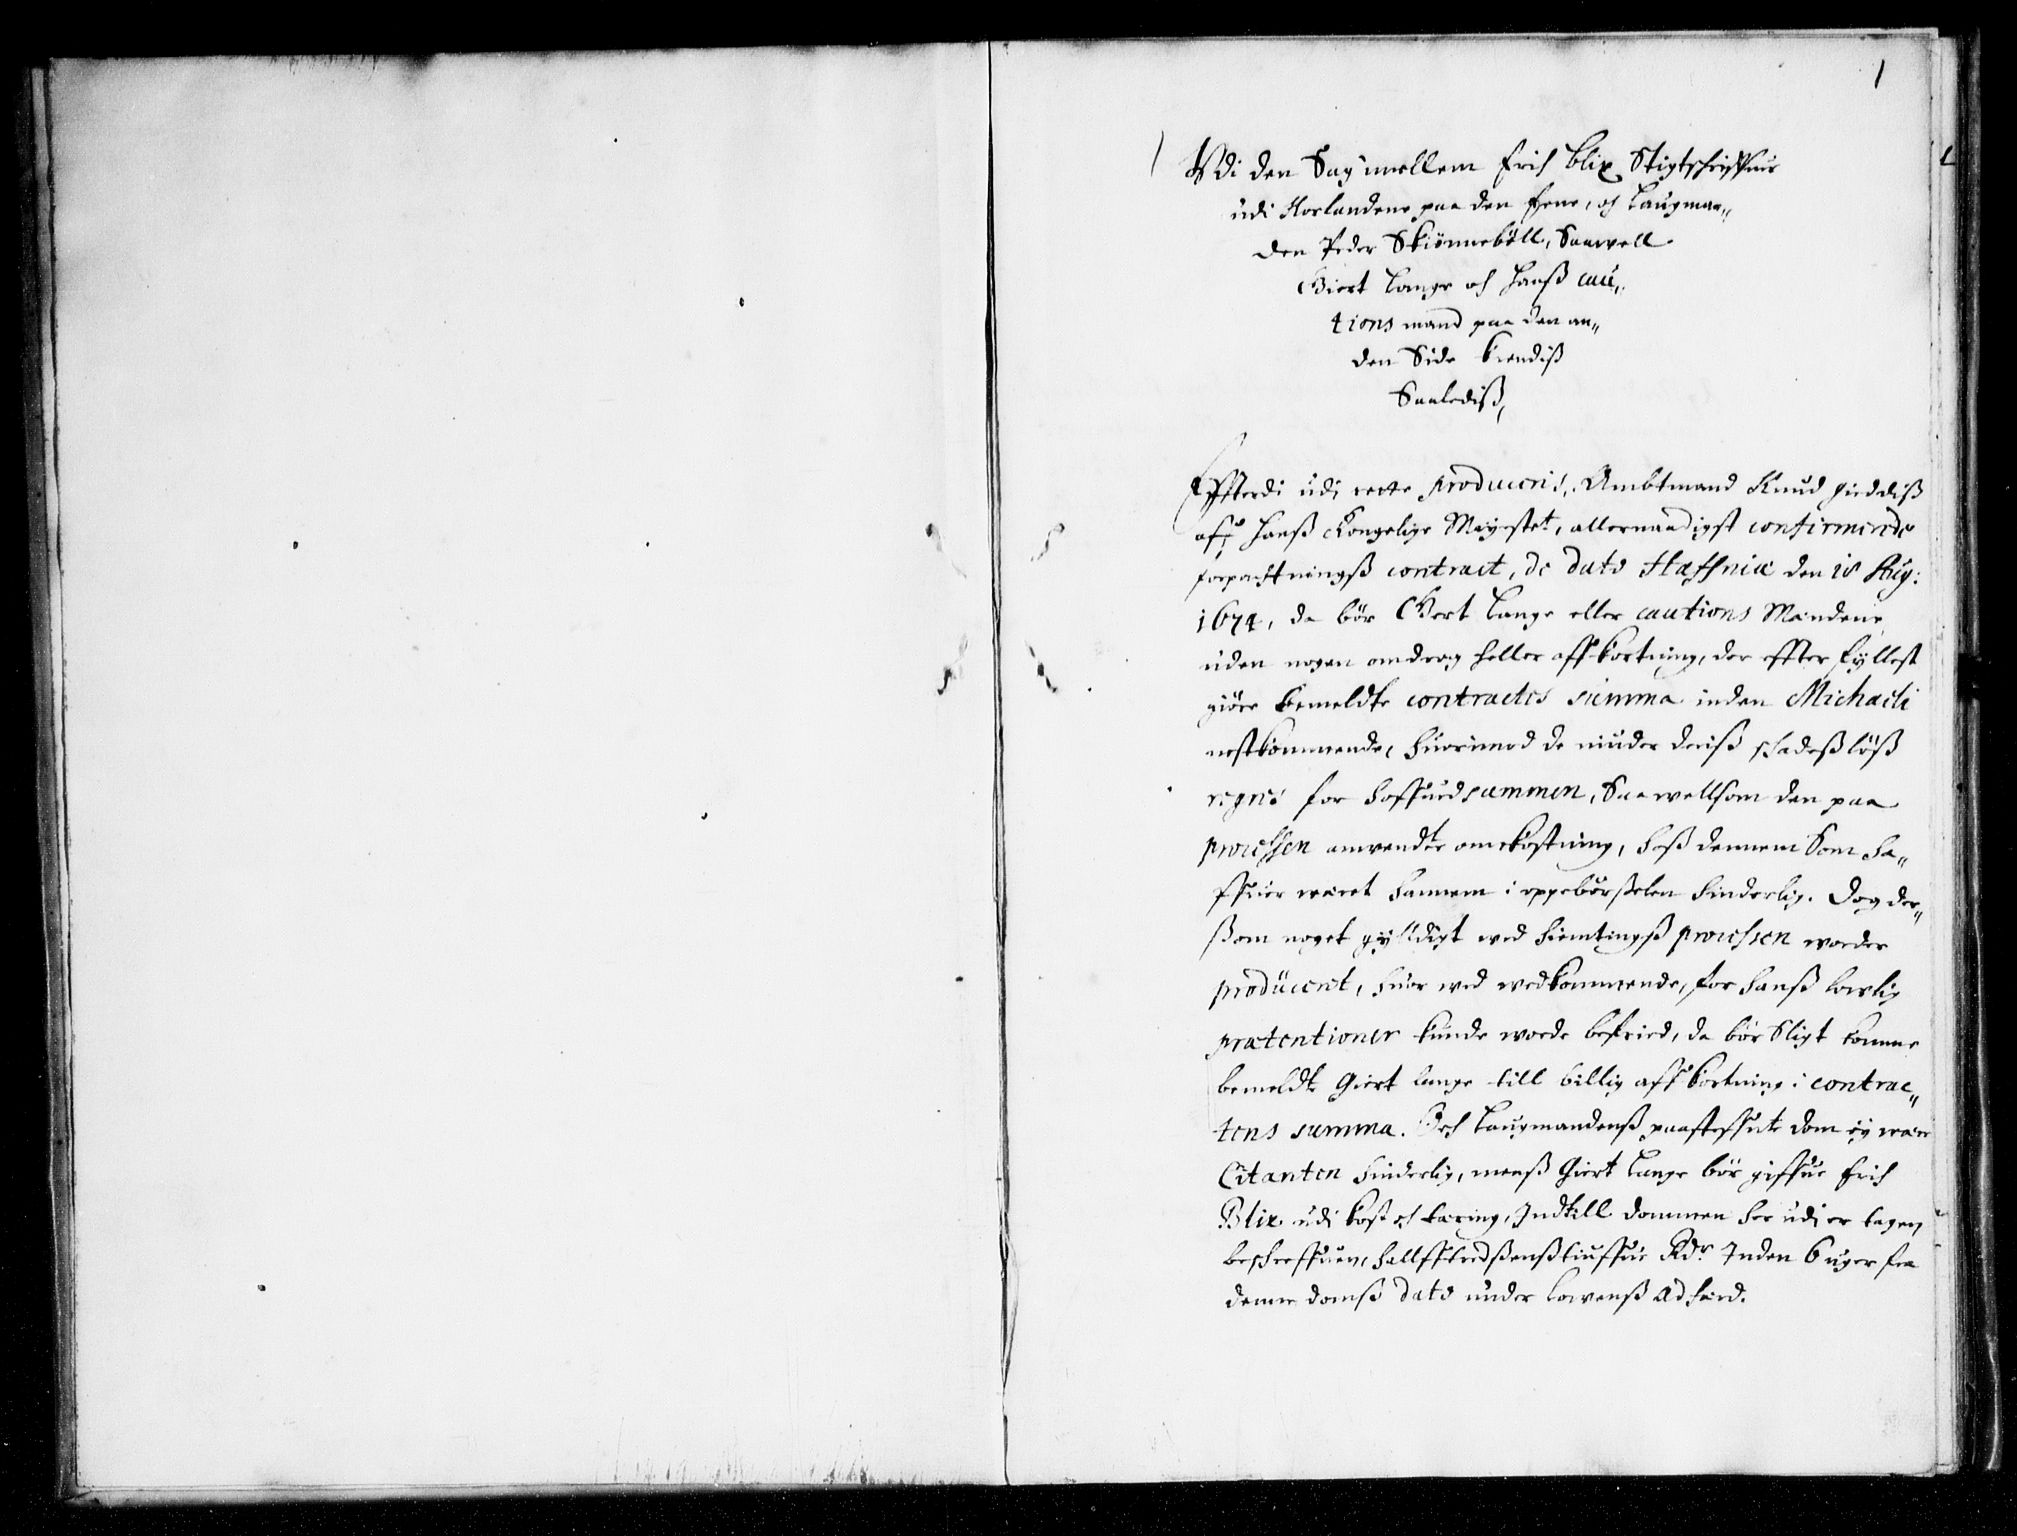 1
Udi den Sag imellem Erich Blix Stigtschrifuer
udi Norlandene paa den Ene, och Laugman„
den Peder Skiönneböll, Saawell
Giert Lange och hanß cau„
tions mand paa den an„
den Side kiendiß
Saalediß,
Effterdi udi rette produceris, Ambtmand Knud Gieddiß
af hanß Kongelige Mayestet, allernaadigst confirmerede
forpachtningß contract, de dato Haffniæ den 18 Aug:
1674, da bör Giert Lange eller cautions Mandene
uden nogen omdrag heller affkortning, der effter fyllest
giöre bemeldte contractes summa inden Michaeli
nestkommende, huorimod de niuder deriß schadeßlöß
regres for hoffuedsummen, Saawellsom den paa
processen anwendte omkostning, hoß dennem Som ha„
ffuer wäret hannem i oppebörßelen hinderlig. Dog der„
ßom noget gylldigt wed hiemtingß processen worder
producerit, huor wed wedkommende, for hanß lowlig
prætentioner kunde worde befried, da bör Sligt komme
bemeldte Giert Lange till billig affkortning i contrac„
tens summa. Och Laugmandenß paasteffnte dom ey wære
Citanten hinderlig, menß Giert Lange bör giffue Erich
Blix udi kost och tæring, Indtill dommen her udi er tagen
beschreffuen, hallfftredßenßtiuffue Rdr. Inden 6 uger fra
denne domß dato under lowenß adfærd.